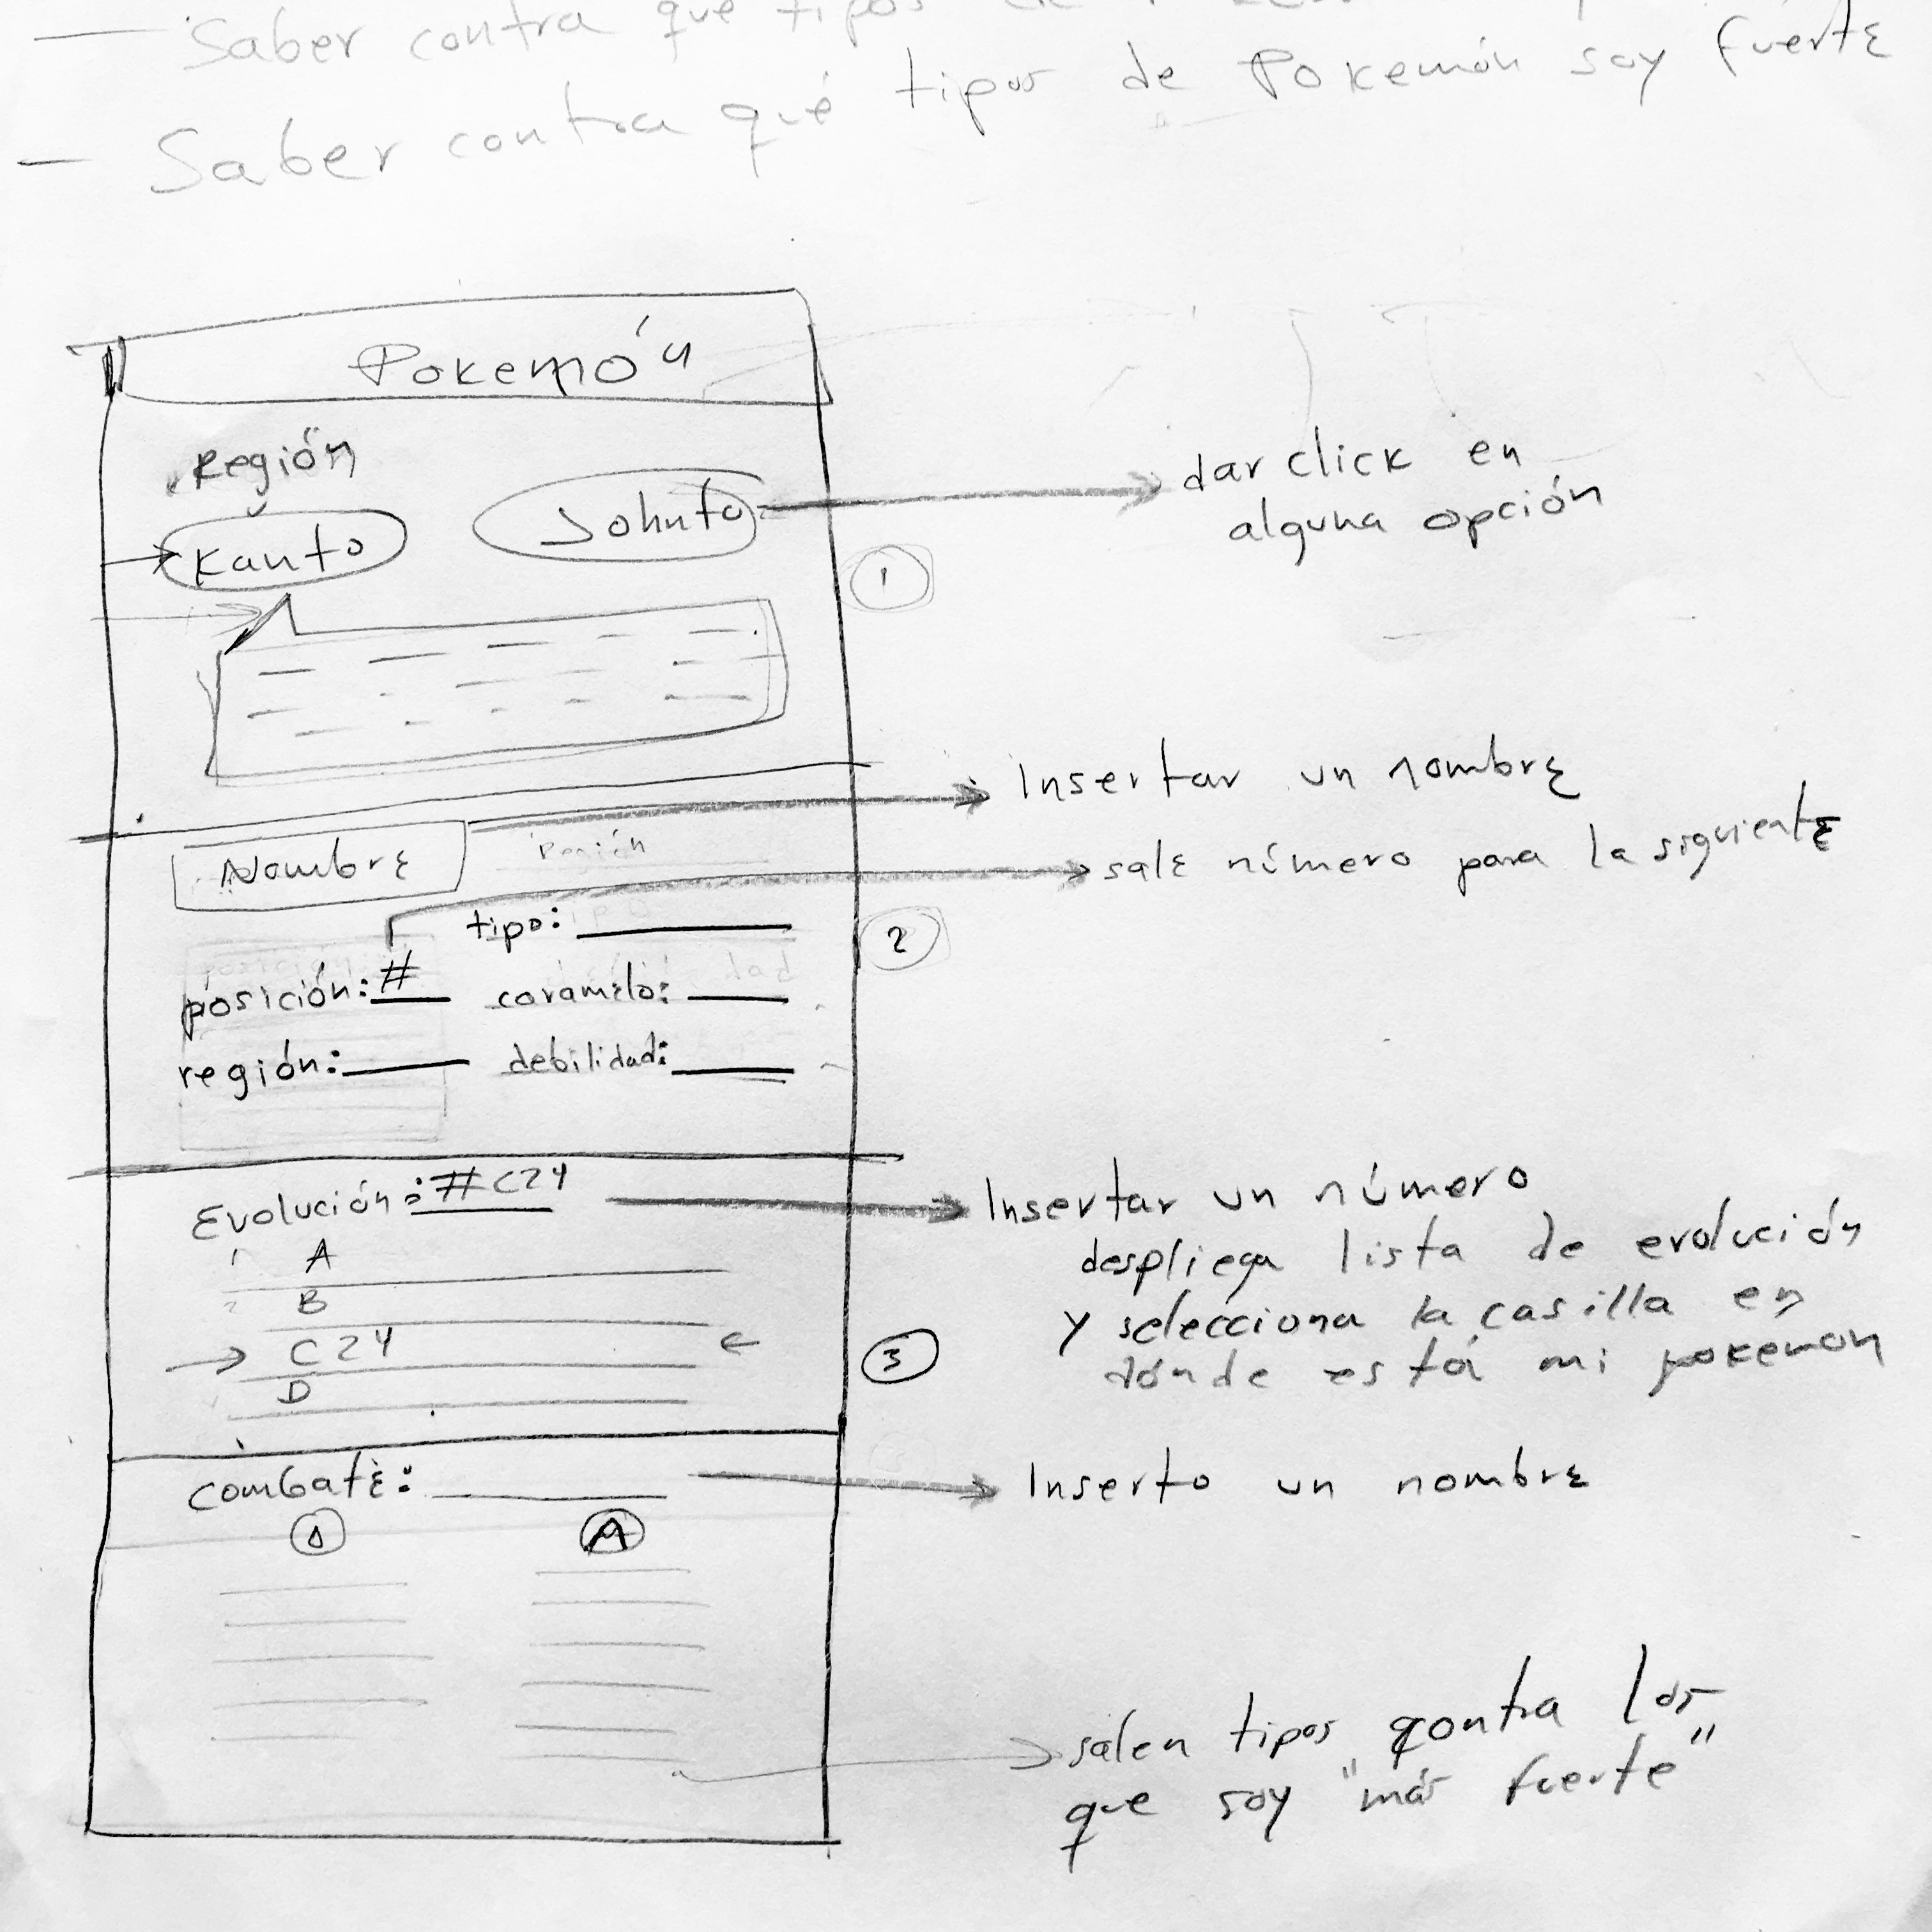 — Saber contra que tipos de
— Saber contra qué tipos de Pokemón soy fuerte
Pokemón
Región
Kanto
Johnto
dar click en
alguna opción
1
Insertar un nombre
Nombre
Región
sale número para la siguiente
tipo:
2
posición: #
caramelo:
región:
debilidad:
Evolución: #C24
Insertar un número
despliega lista de evolución
y selecciona la casilla en
dónde está mi pokemon
1 A
2 B
C24
D
3
Combate:
Inserto un nombre
A
salen tipos contra los
que soy "más fuerte"